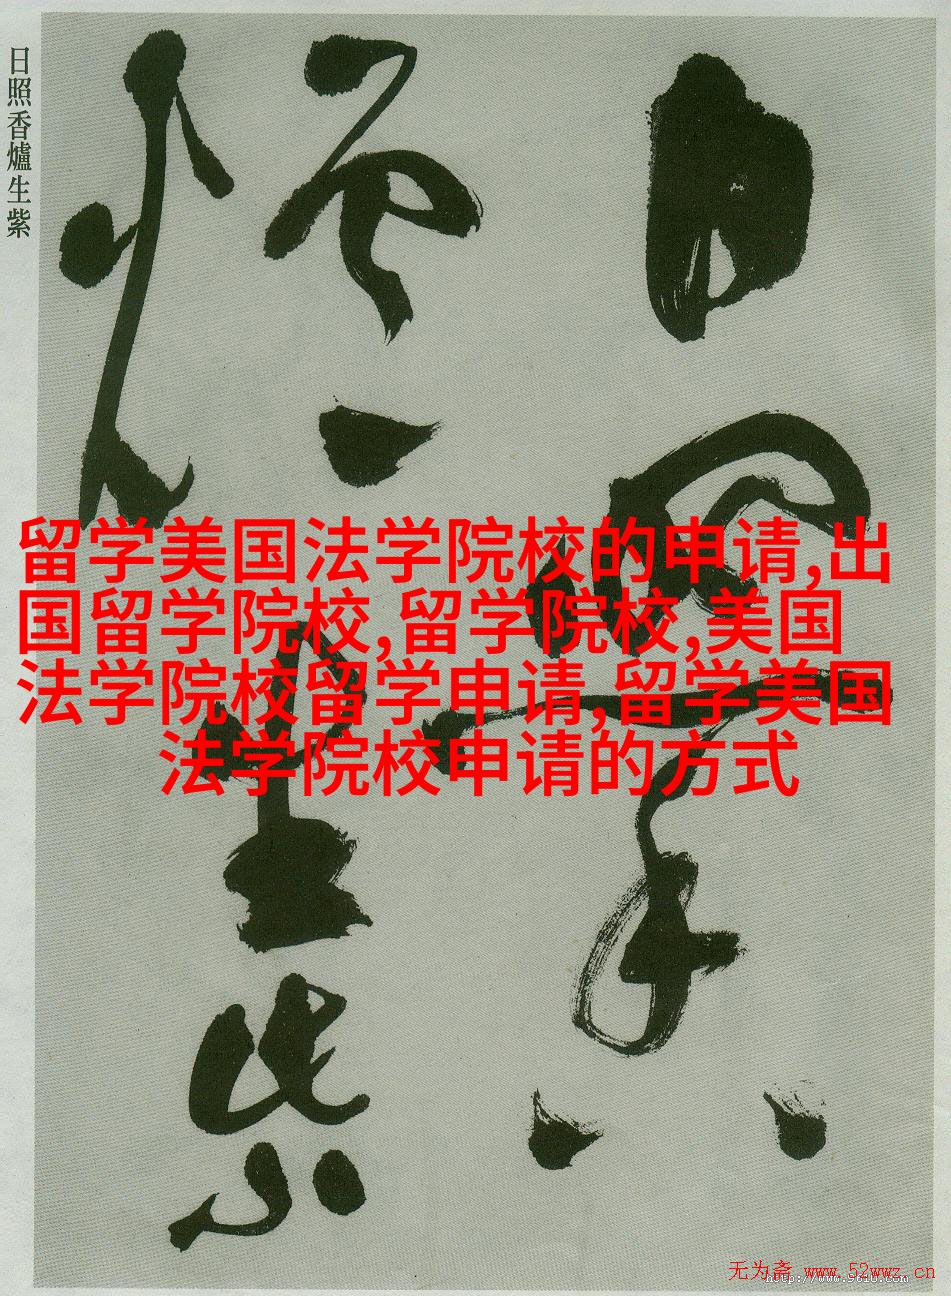 日照香爐生紫
日照香
爐生紫
留学美国法学院校的申请,出
国留学院校,留学院校,美国
法学院校留学申请,留学美国
法学院校申请的方式
无为斋 www.52wwz.cn
http://www.9610.com